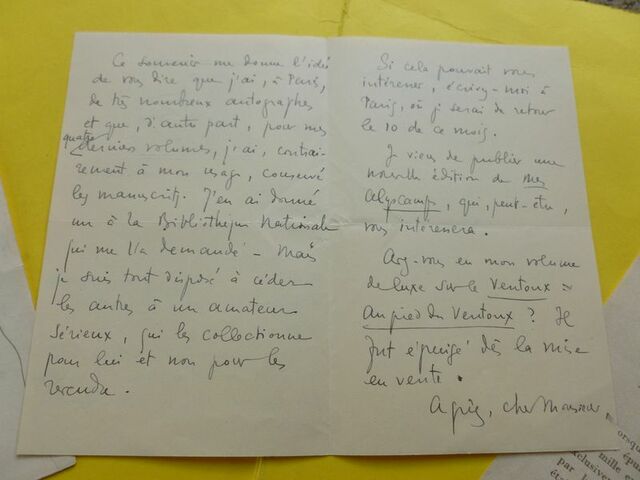 Ce souvenir me donne l'idée
de vous dire que j'ai, à Paris,
de très nombreux autographes
et que, d'autre part, pour mes
quatre
derniers volumes, j'ai, contrai-
rement à mon usage, conservé
les manuscrits. J'en ai donné
un à la Bibliothèque Nationale
qui me l'a demandé - Mais
je suis tout disposé à céder
les autres à un amateur
sérieux, qui les collectionne
pour lui et non pour les
revendre.
Si cela pouvait vous
intéresser, écrivez-moi à
Paris, où je serai de retour
le 10 de ce mois.
Je viens de publier une
nouvelle édition de mes
Alyscamps, qui, peut-être,
vous intéressera.
Avez-vous eu mon volume
de luxe sur le Ventoux :
Au pied du Ventoux ? Il
fut épuisé dès la mise
en vente.
Agréez, cher Monsieur,
lorsqu
épu
mille e
exclusiven
par l